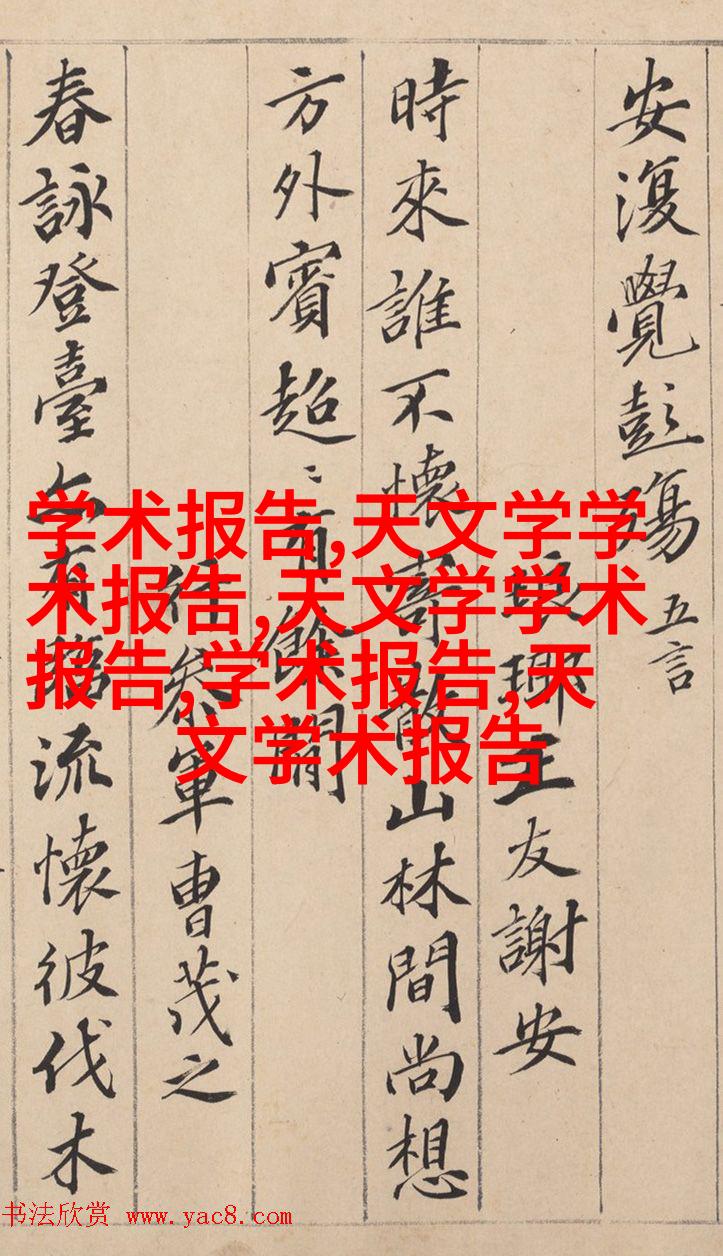 安復覺彭殤 五言
琅琊王友謝安
時來誰不懷寄散山林間尚想
方外賓超〻有餘閒
行參軍曹茂之
春詠登臺亦有臨流懷彼伐木
学术报告,天文学学
术报告,天文学学术
报告,学术报告,天
文学术报告
书法欣赏 www.yac8.com